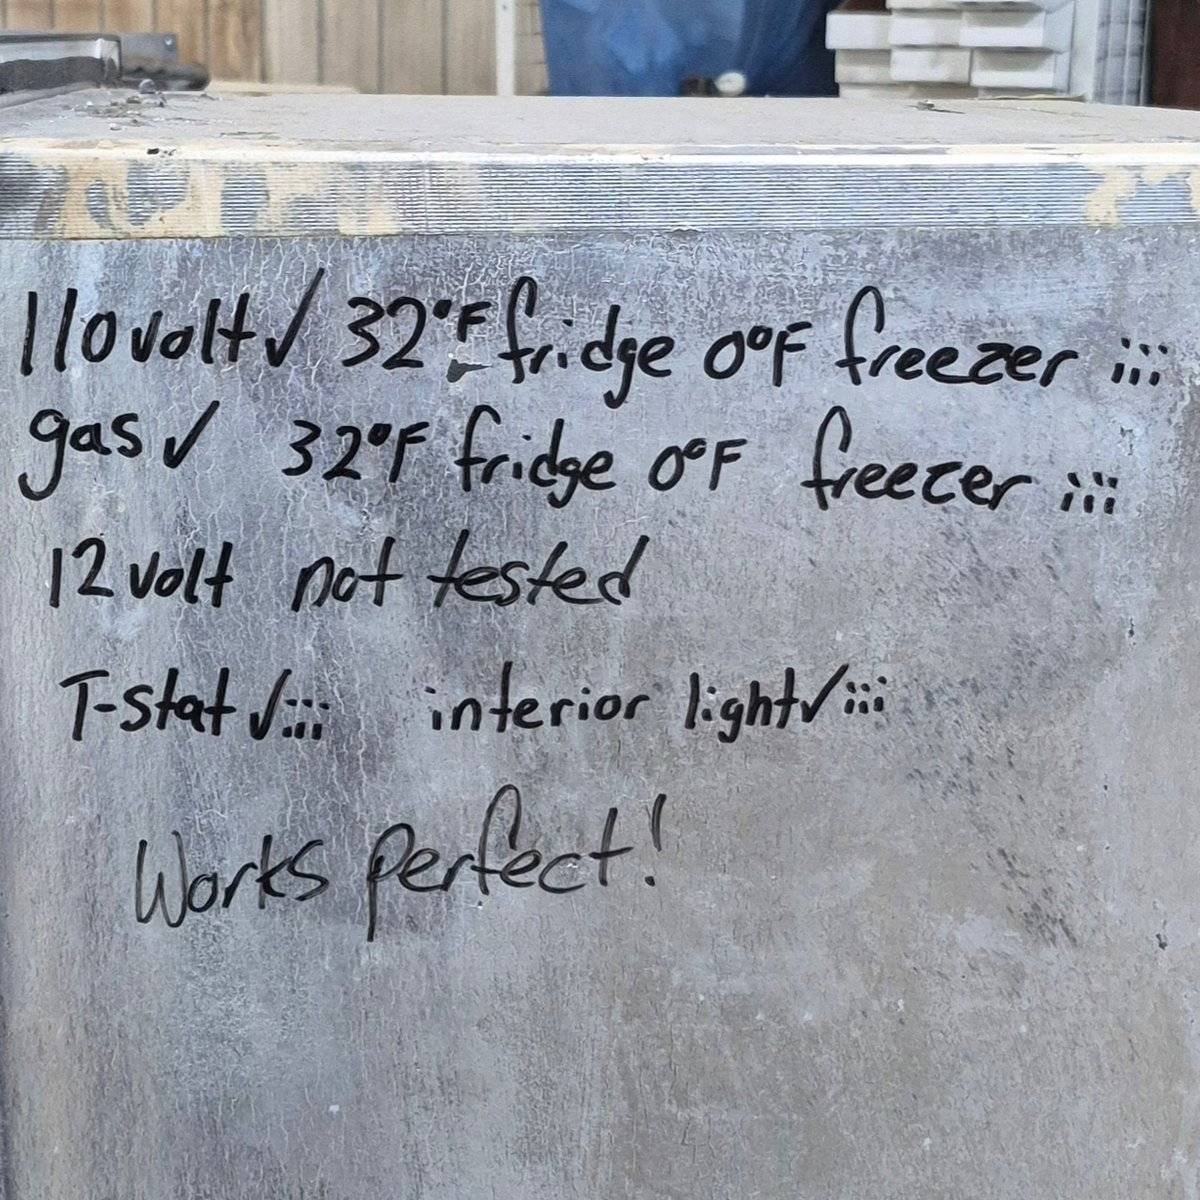 110 volt✓ 32°F fridge 0°F freezer ¡¡¡
gas✓ 32°F fridge 0°F freezer ¡¡¡
12 volt not tested
T-stat ✓¡¡¡ interior light✓¡¡¡
Works perfect!